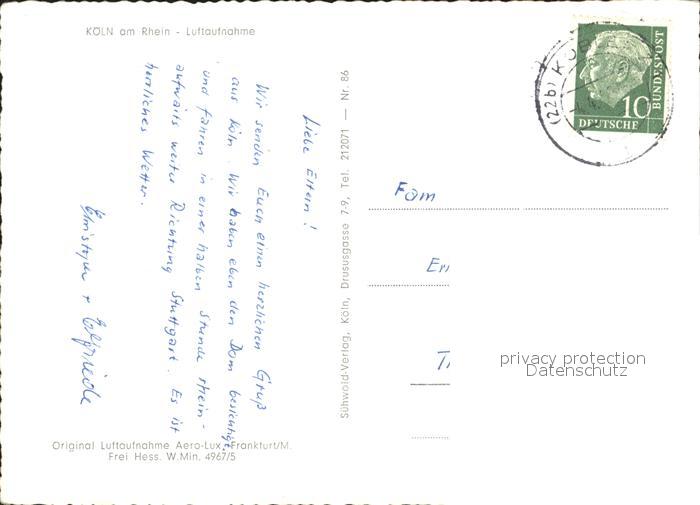 KÖLN am Rhein - Luftaufnahme
Liebe Eltern!
Wir senden Euch einen herzlichen Gruß
aus Köln. Wir haben eben den Dom besichtigt
und fahren in einer halben Stunde rhein-
aufwärts weiter Richtung Stuttgart. Es ist
herrliches Wetter.
+ Elfriede
Original Luftaufnahme Aero-Lux, Frankfurt/M.
Frei Hess. W.Min. 4967/5
Sühwold-Verlag, Köln, Drususgasse 7-9, Tel. 212071 — Nr. 86
(22b) KOBL
10
DEUTSCHE
BUNDESPOST
Fam
privacy protection
Datenschutz